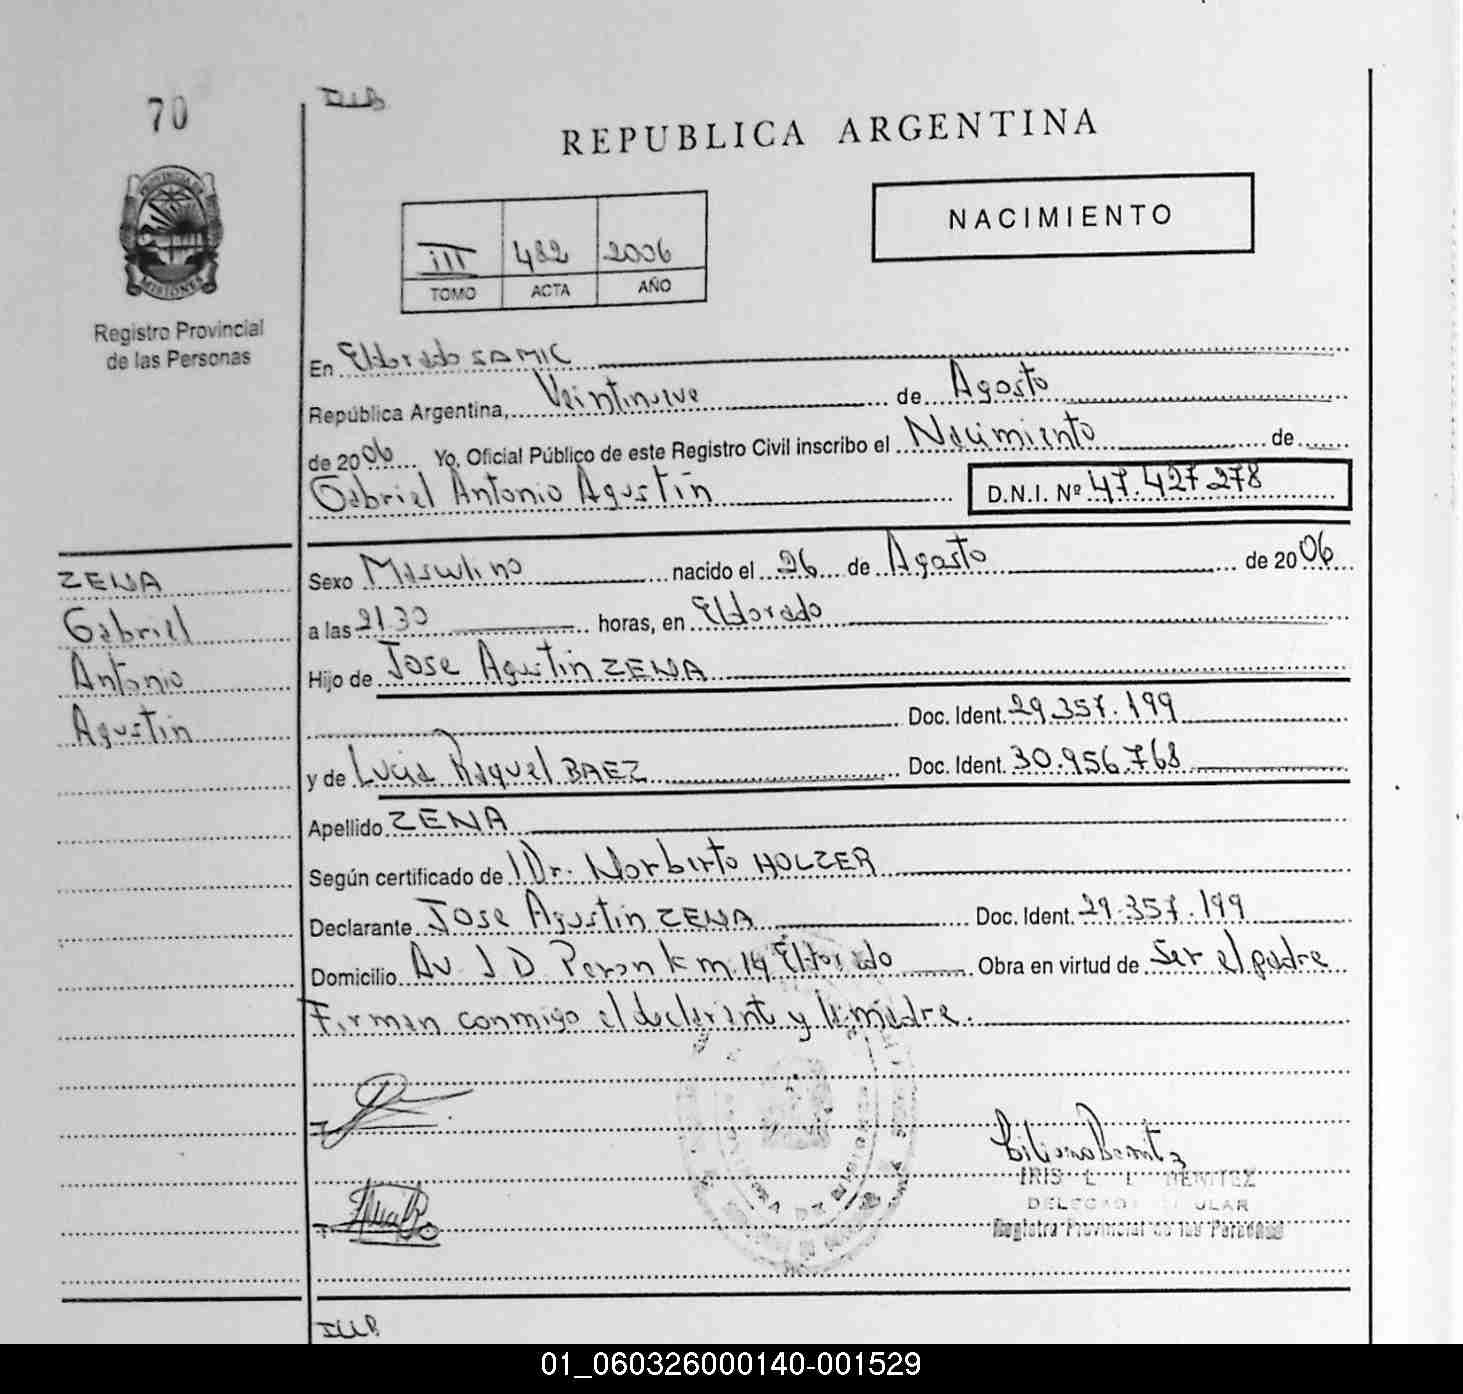 70
ILLB
REPUBLICA ARGENTINA
NACIMIENTO
PROVINCIA DE
MISIONES
III 482 2006
TOMO ACTA AÑO
Registro Provincial
de las Personas
En Eldorado SAMIC
República Argentina, Veintinueve de Agosto
de 2006 Yo, Oficial Público de este Registro Civil inscribo el Nacimiento de
Gabriel Antonio Agustin D.N.I. Nº 47.427.278
ZENA
Gabriel
Antonio
Agustin
Sexo Masculino nacido el 26 de Agosto de 2006
a las 21 30 horas, en Eldorado
Hijo de Jose Agustin ZENA
Doc. Ident. 29.357.199
y de Lucia Raquel BAEZ Doc. Ident. 30.956.768
Apellido ZENA
Según certificado de Dr. Norberto HOLZER
Declarante Jose Agustin ZENA Doc. Ident. 29.357.199
Domicilio Av. J D Peron km. 14 Eldorado Obra en virtud de Ser el padre
Firman conmigo el declarante y la madre.
IRIS L L BENITEZ
Registro Provincial de las Personas
ILLB
01_060326000140-001529